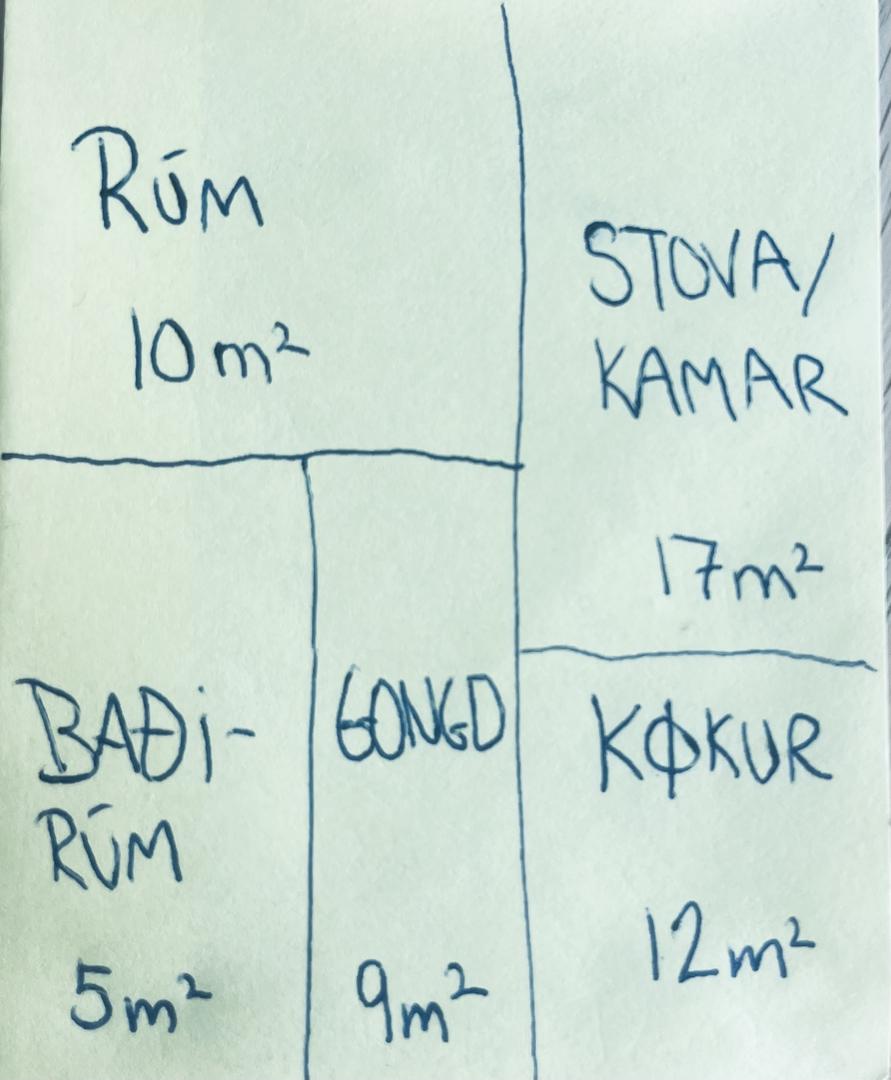 RÚM
10 m²
STOVA/
KAMAR
17 m²
BAÐi-
RÚM
5 m²
GONGD
9 m²
KØKUR
12 m²